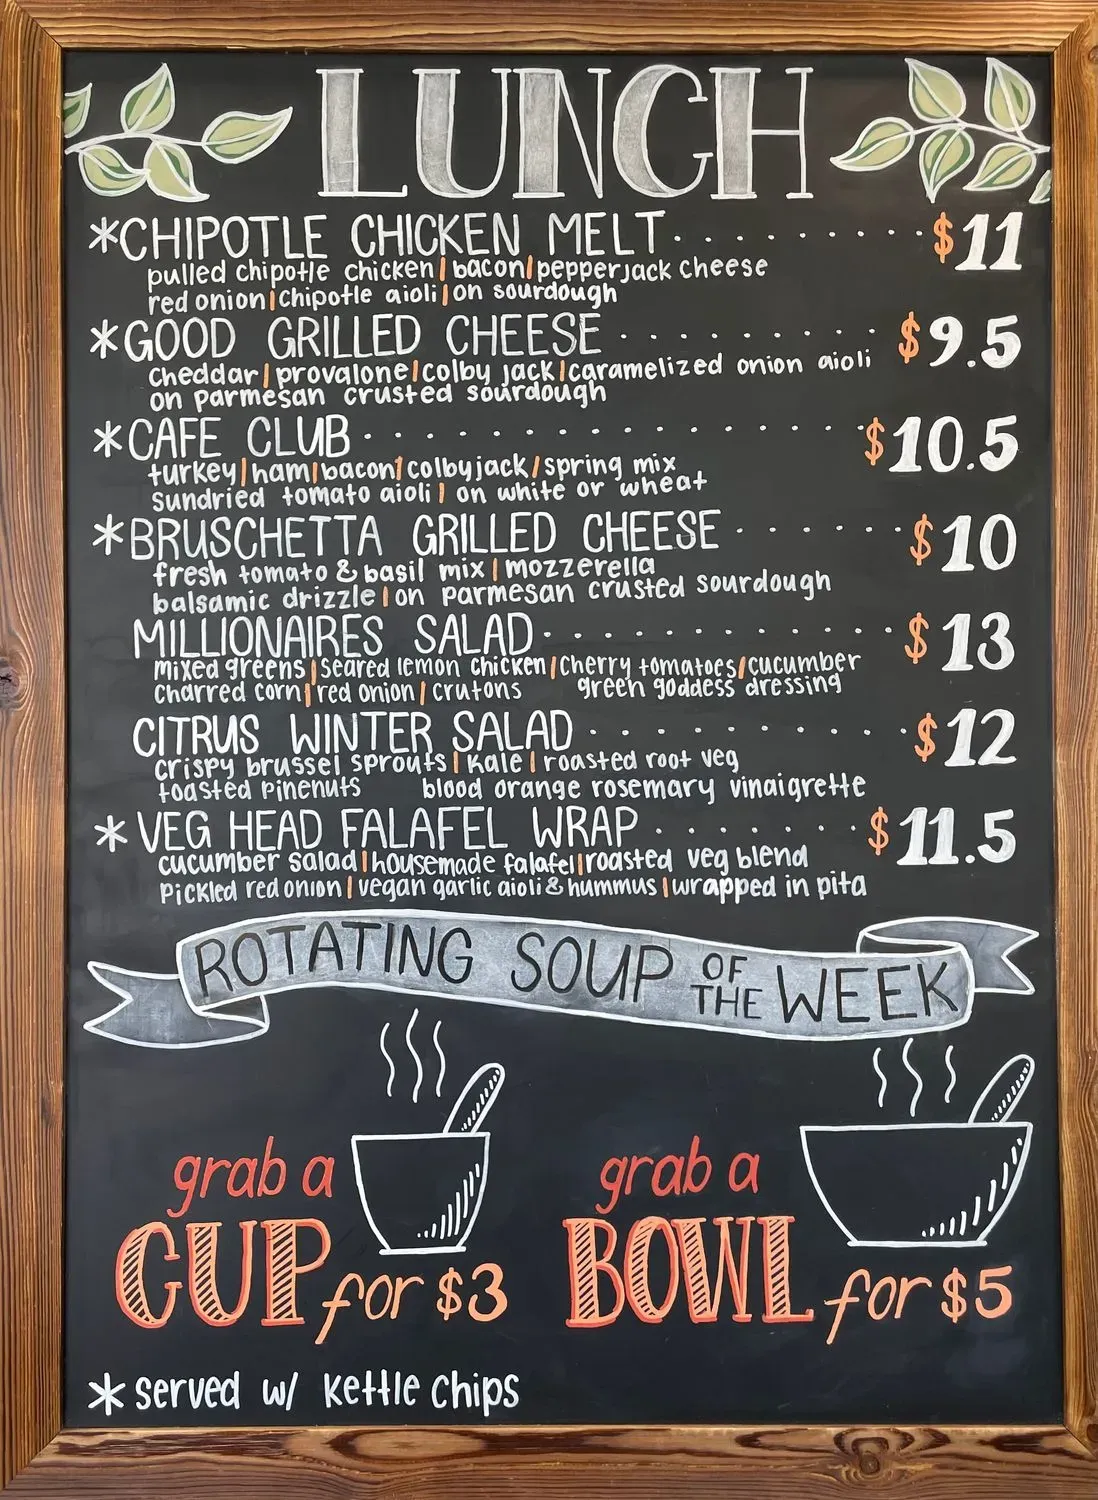 LUNCH
*CHIPOTLE CHICKEN MELT. . . . . . . . . $11
pulled chipotle chicken|bacon|pepperjack cheese
red onion|chipotle aioli|on sourdough
*GOOD GRILLED CHEESE . . . . . . . . . $9.5
cheddar|provalone|colby jack|caramelized onion aioli
on parmesan crusted sourdough
*CAFE CLUB . . . . . . . . . . . . . . . . $10.5
turkey|ham|bacon|colbyjack|spring mix
sundried tomato aioli|on white or wheat
*BRUSCHETTA GRILLED CHEESE . . . . . . $10
fresh tomato & basil mix|mozzerella
balsamic drizzle|on parmesan crusted sourdough
MILLIONAIRES SALAD. . . . . . . . . . . . $13
mixed greens|seared lemon chicken|cherry tomatoes|cucumber
charred corn|red onion|crutons green goddess dressing
CITRUS WINTER SALAD . . . . . . . . . . $12
crispy brussel sprouts|kale|roasted root veg
toasted pinenuts blood orange rosemary vinaigrette
*VEG HEAD FALAFEL WRAP . . . . . . . $11.5
cucumber salad|housemade falafel|roasted veg blend
pickled red onion|vegan garlic aioli & hummus|wrapped in pita
ROTATING SOUP OF THE WEEK
grab a
CUP for $3
grab a
BOWL for $5
* served w/ kettle chips